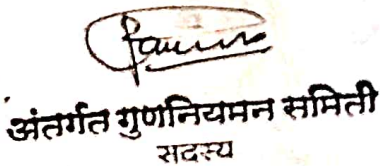 अंतर्गत गुणनियमन समिती
सदस्य